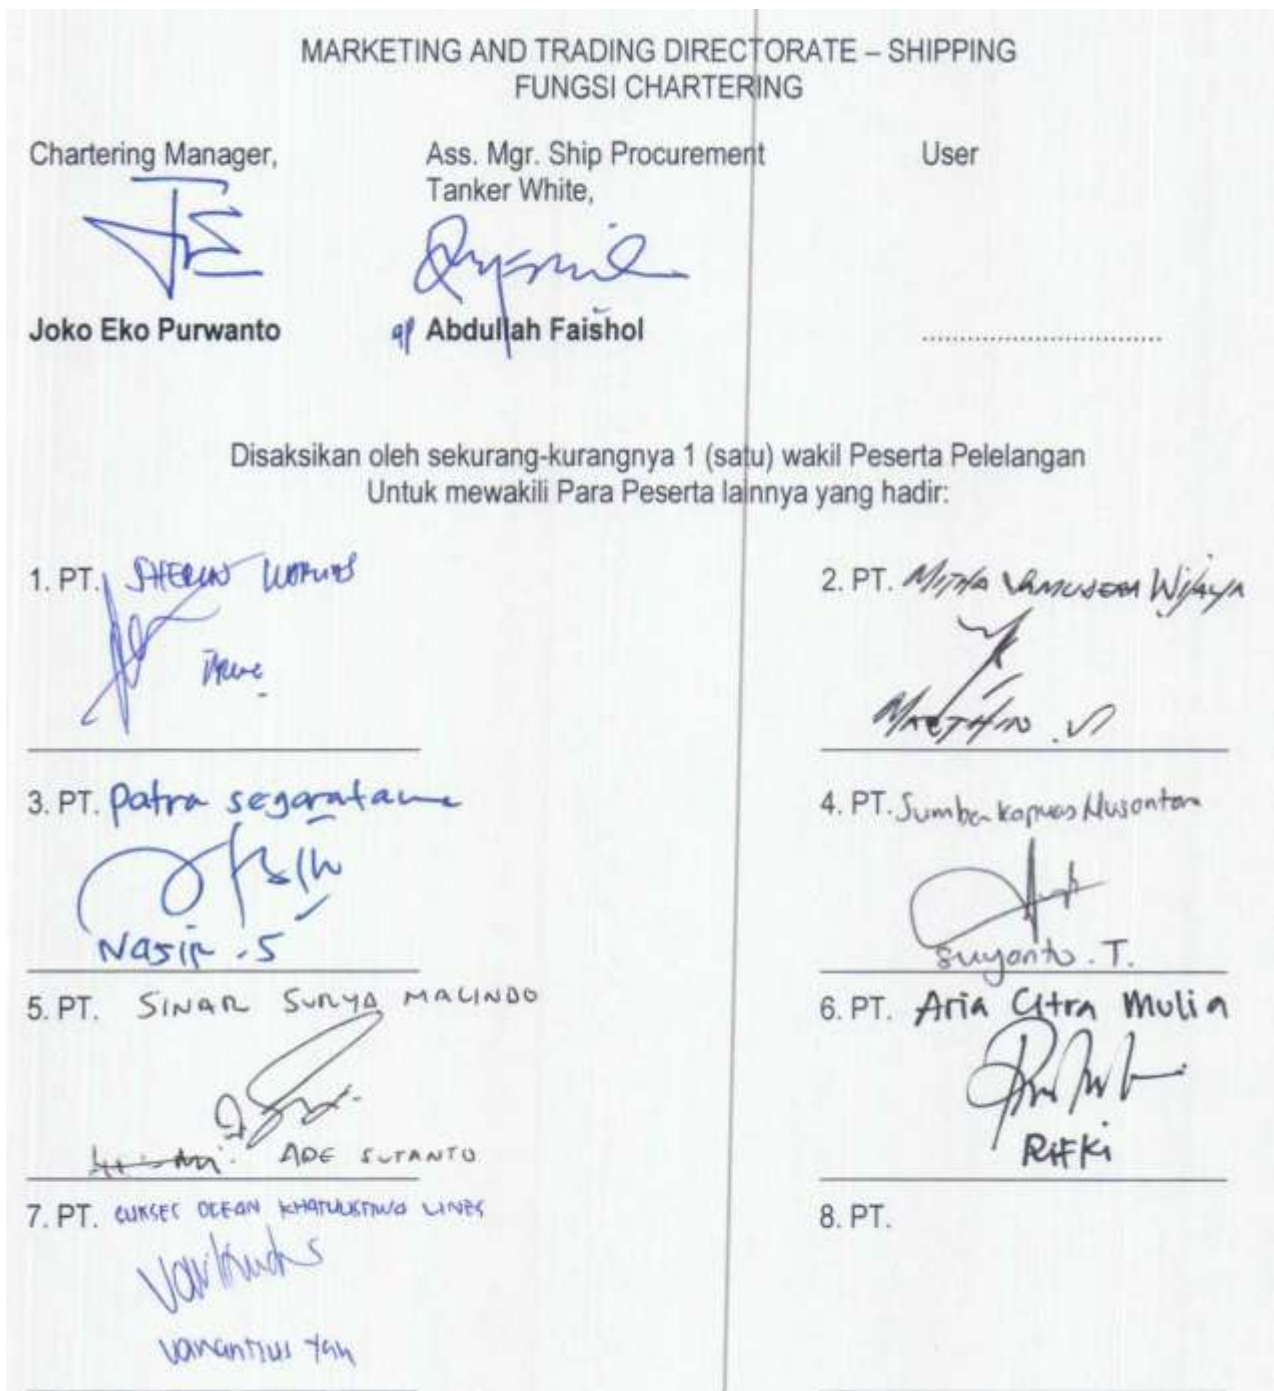 MARKETING AND TRADING DIRECTORATE – SHIPPING
FUNGSI CHARTERING
Chartering Manager,
Ass. Mgr. Ship Procurement
Tanker White,
User
Joko Eko Purwanto
Abdullah Faishol
..............................
Disaksikan oleh sekurang-kurangnya 1 (satu) wakil Peserta Pelelangan
Untuk mewakili Para Peserta lainnya yang hadir:
1. PT.
2. PT. Wijaya
MARTHIN . S
3. PT. Patra segaratama
Nasir . S
4. PT. Sumber Kapuas Nusantara
Suyanto . T.
5. PT. SINAR SURYA MALINDO
ADE SUTANTO
6. PT. Aria Citra Mulia
RIFKi
7. PT. OCEAN KHATULISTIWA LINES
8. PT.